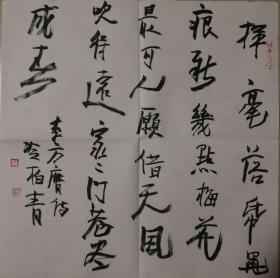 揮毫落紙墨
痕新幾點梅花
最可人願借天風
吹得遠家々門巷盡
成春
李方膺詩
柏青